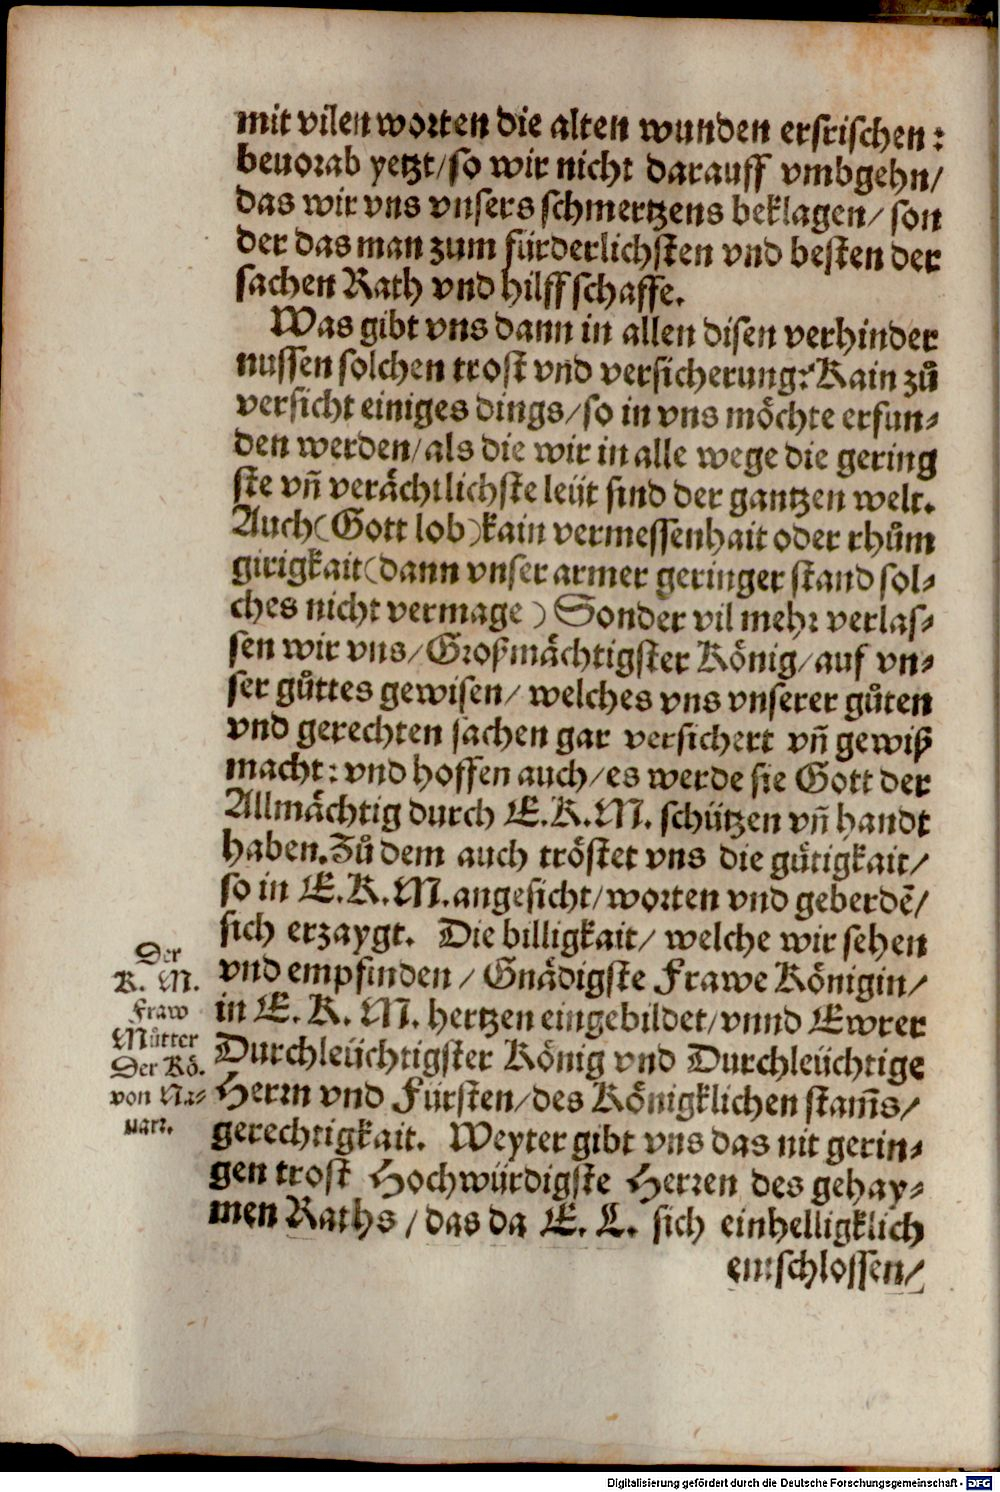 mit vilen worten die alten wunden erfrischen:
beuorab yetzt/so wir nicht darauff vmbgehn/
das wir vns vnsers schmertzens beklagen/ son
der das man zum fürderlichsten vnd besten der
sachen Rath vnd hilff schaffe.
Was gibt vns dann in allen disen verhinder
nussen solchen trost vnd versicherung? Kain zů
versicht einiges dings/so in vns möchte erfun-
den werden/als die wir in alle wege die gering
ste vñ verächtlichste leüt sind der gantzen welt.
Auch(Gott lob)kain vermessenhait oder rhům
girigkait(dann vnser armer geringer stand sol-
ches nicht vermage) Sonder vil mehr verlas-
sen wir vns/Großmächtigster König/auf vn-
ser gůttes gewisen/ welches vns vnserer gůten
vnd gerechten sachen gar versichert vñ gewiß
macht: vnd hoffen auch/es werde sie Gott der
Allmächtig durch E.K.M. schützen vñ handt
haben.Zů dem auch tröstet vns die gütigkait/
so in E.K.M.angesicht/worten vnd geberdẽ/
sich erzaygt. Die billigkait/ welche wir sehen
vnd empfinden/ Gnädigste Frawe Königin/
in E. K. M. hertzen eingebildet/vnnd Ewrer
Durchleüchtigster König vnd Durchleüchtige
Herrn vnd Fürsten/des Königklichen stam̃s/
gerechtigkait. Weyter gibt vns das nit gerin-
gen trost Hochwürdigste Herren des gehay-
men Raths/das da E. L. sich einhelligklich
entschlossen/
Der
K. M.
Fraw
Můtter
Der Kö.
von Na-
uarr.
Digitalisierung gefördert durch die Deutsche Forschungsgemeinschaft - DFG